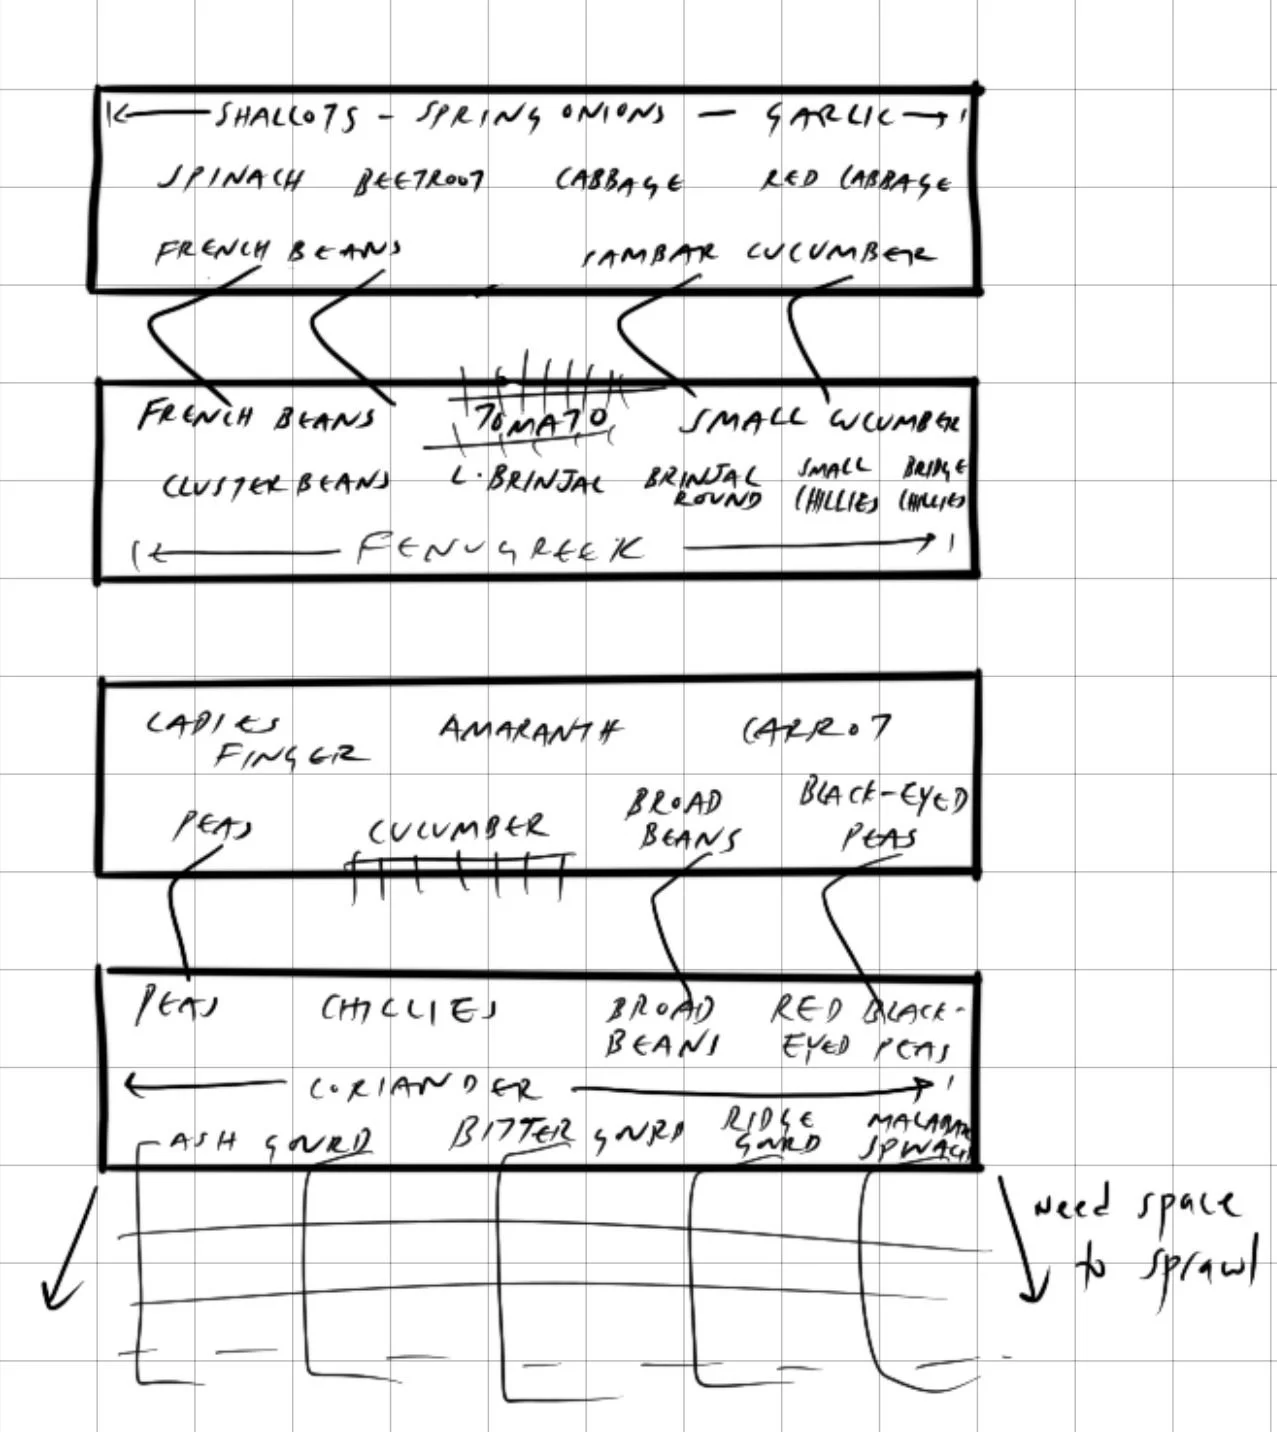 SHALLOTS - SPRING ONIONS - GARLIC
SPINACH BEETROOT CABBAGE RED CABBAGE
FRENCH BEANS SAMBAR CUCUMBER
FRENCH BEANS TOMATO SMALL CUCUMBER
CLUSTER BEANS L. BRINJAL BRINJAL ROUND SMALL CHILLIES BRIDGE CHILLIES
FENUGREEK
LADIES FINGER AMARANTH CARROT
PEAS CUCUMBER BROAD BEANS BLACK-EYED PEAS
PEAS CHILLIES BROAD BEANS RED BLACK-EYED PEAS
CORIANDER
ASH GOURD BITTER GOURD RIDGE GOURD MALABAR SPINACH
Need space
to sprawl